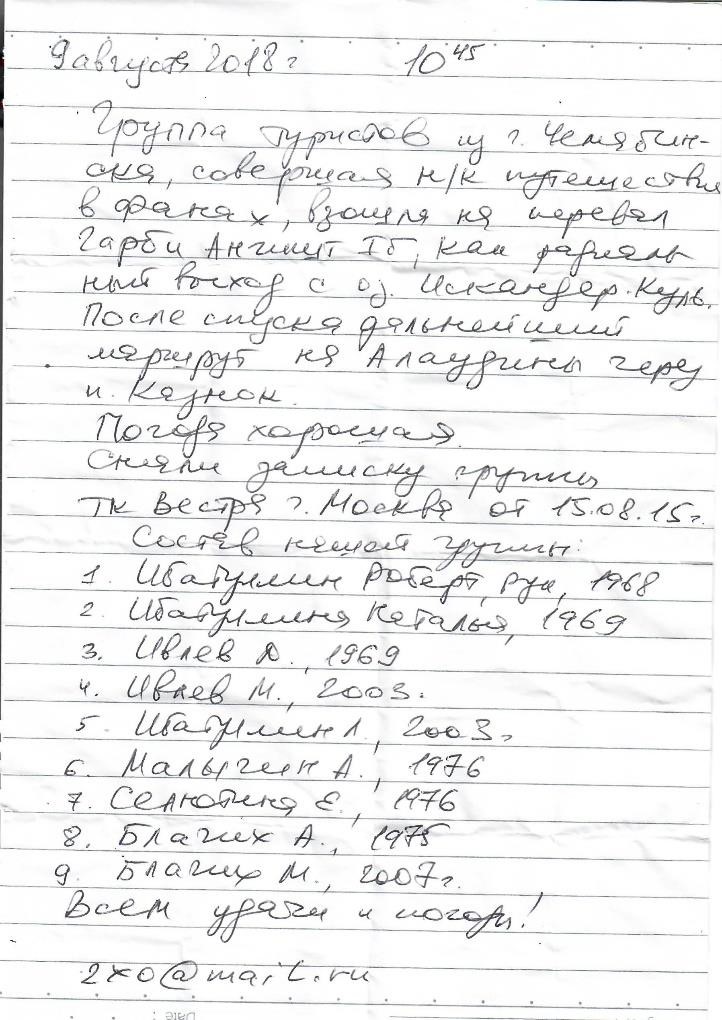 9 августа 2018 г 10 45
Группа туристов из г. Челябин-
ска, совершая н/к путешествие
в Фанах, взошла на перевал
Гарби Ангишт 1б, как радиаль
ный выход с оз. Искандер-Куль.
После спуска дальнейший
маршрут на Алаудины через
п. Казнок.
Погода хорошая
Сняли записку группы
ТК Вестра г. Москва от 15.08.15г.
Состав нашей группы:
1. Ибатулин Роберт, рук, 1968
2. Ибатулина Наталья, 1969
3. Ивлев Д., 1969
4. Ивлев М., 2003.
5. Ибатулин Л., 2003г
6. Малыгин А., 1976
7. Селютина Е., 1976
8. Благих А., 1975
9. Благих М., 2007г.
Всем удачи и погоды!
2xo@mail.ru
Date :